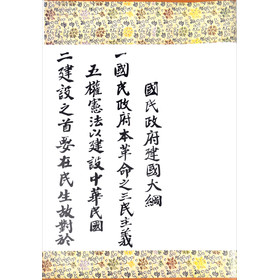 國民政府建國大綱
一國民政府本革命之三民主義
五權憲法以建設中華民國
二建設之首要在民生故對於